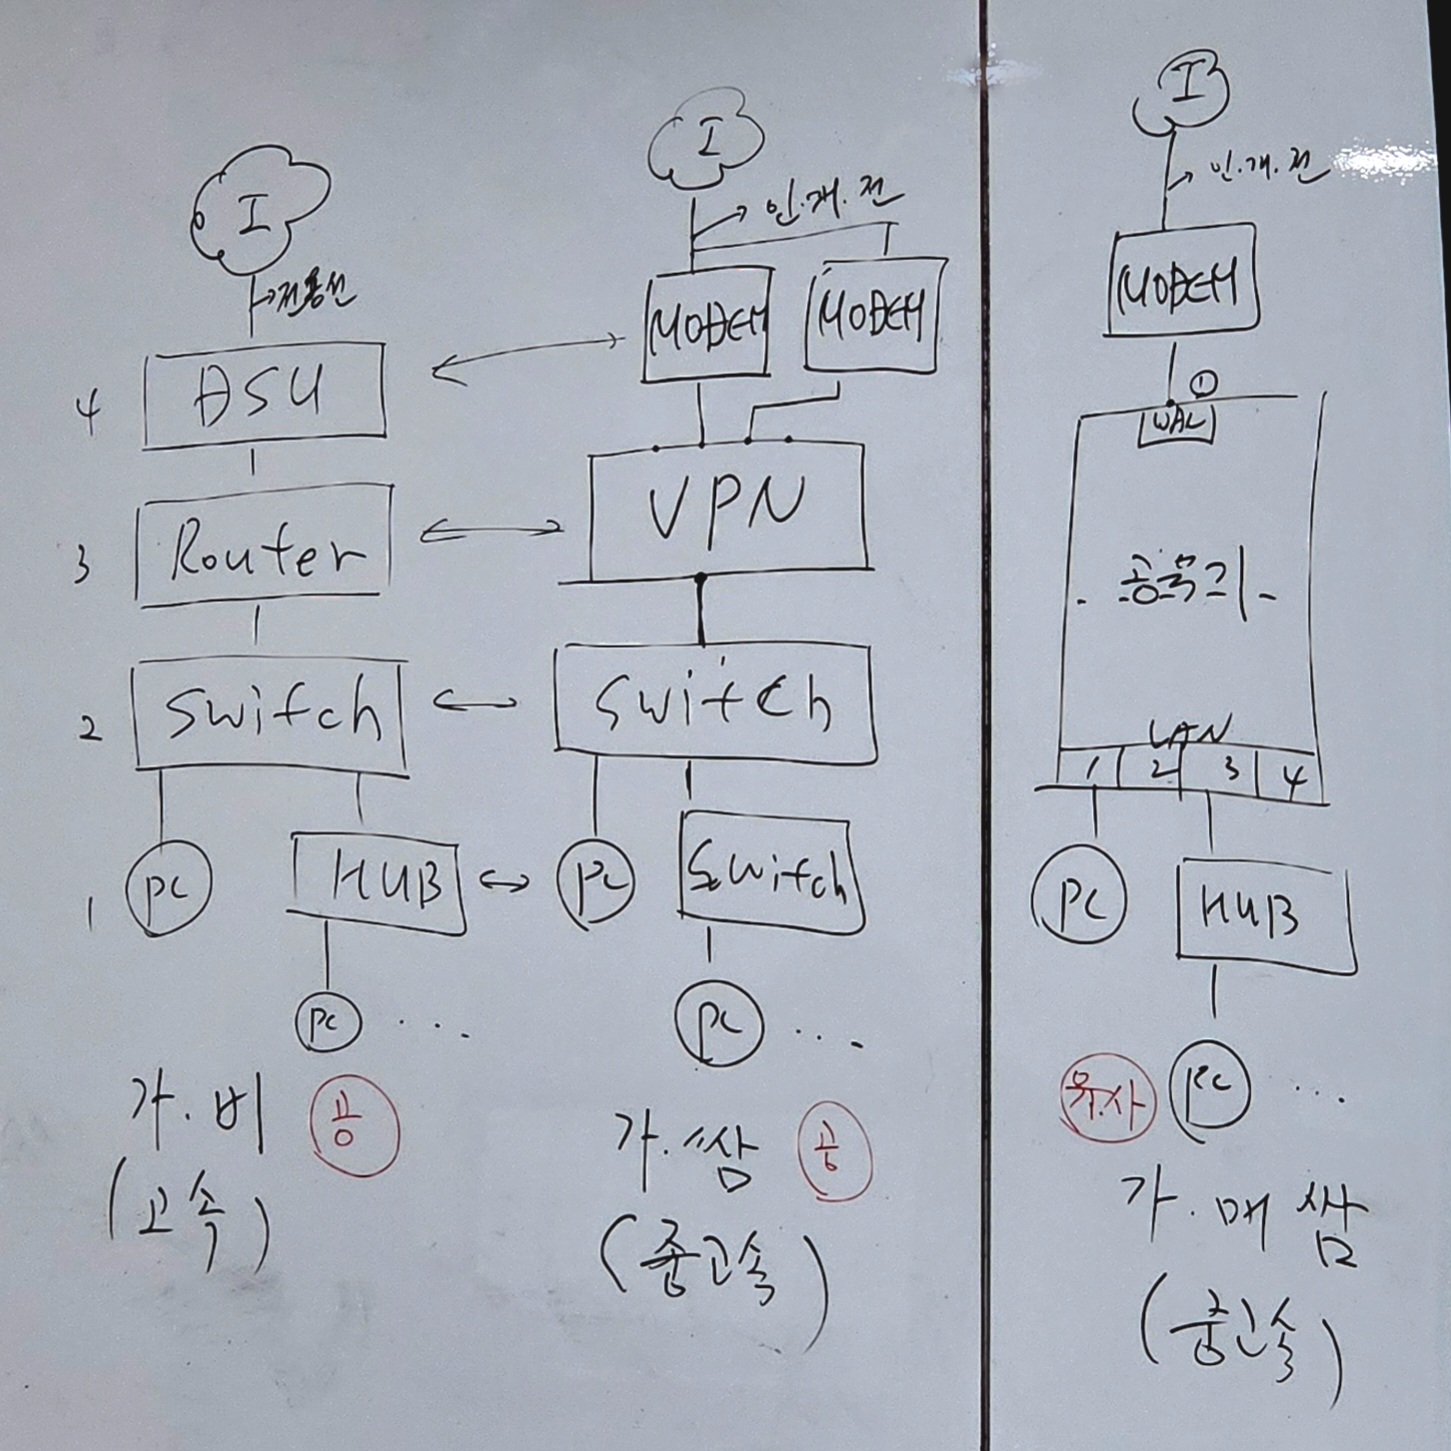 I
전용선
4 DSU
3 Router
2 Switch
1 PC HUB
PC ...
가.비 공
(고속)
I
인.개.전
MODEM MODEM
VPN
Switch
PC Switch
PC ...
가.쌈 공
(중고속)
I
인.개.전
MODEM
①
공유기
LAN
1 2 3 4
PC HUB
유.사 PC ...
가.매쌈
(중고속)